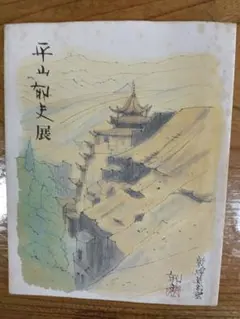 平山郁夫展
敦煌莫高窟
郁夫